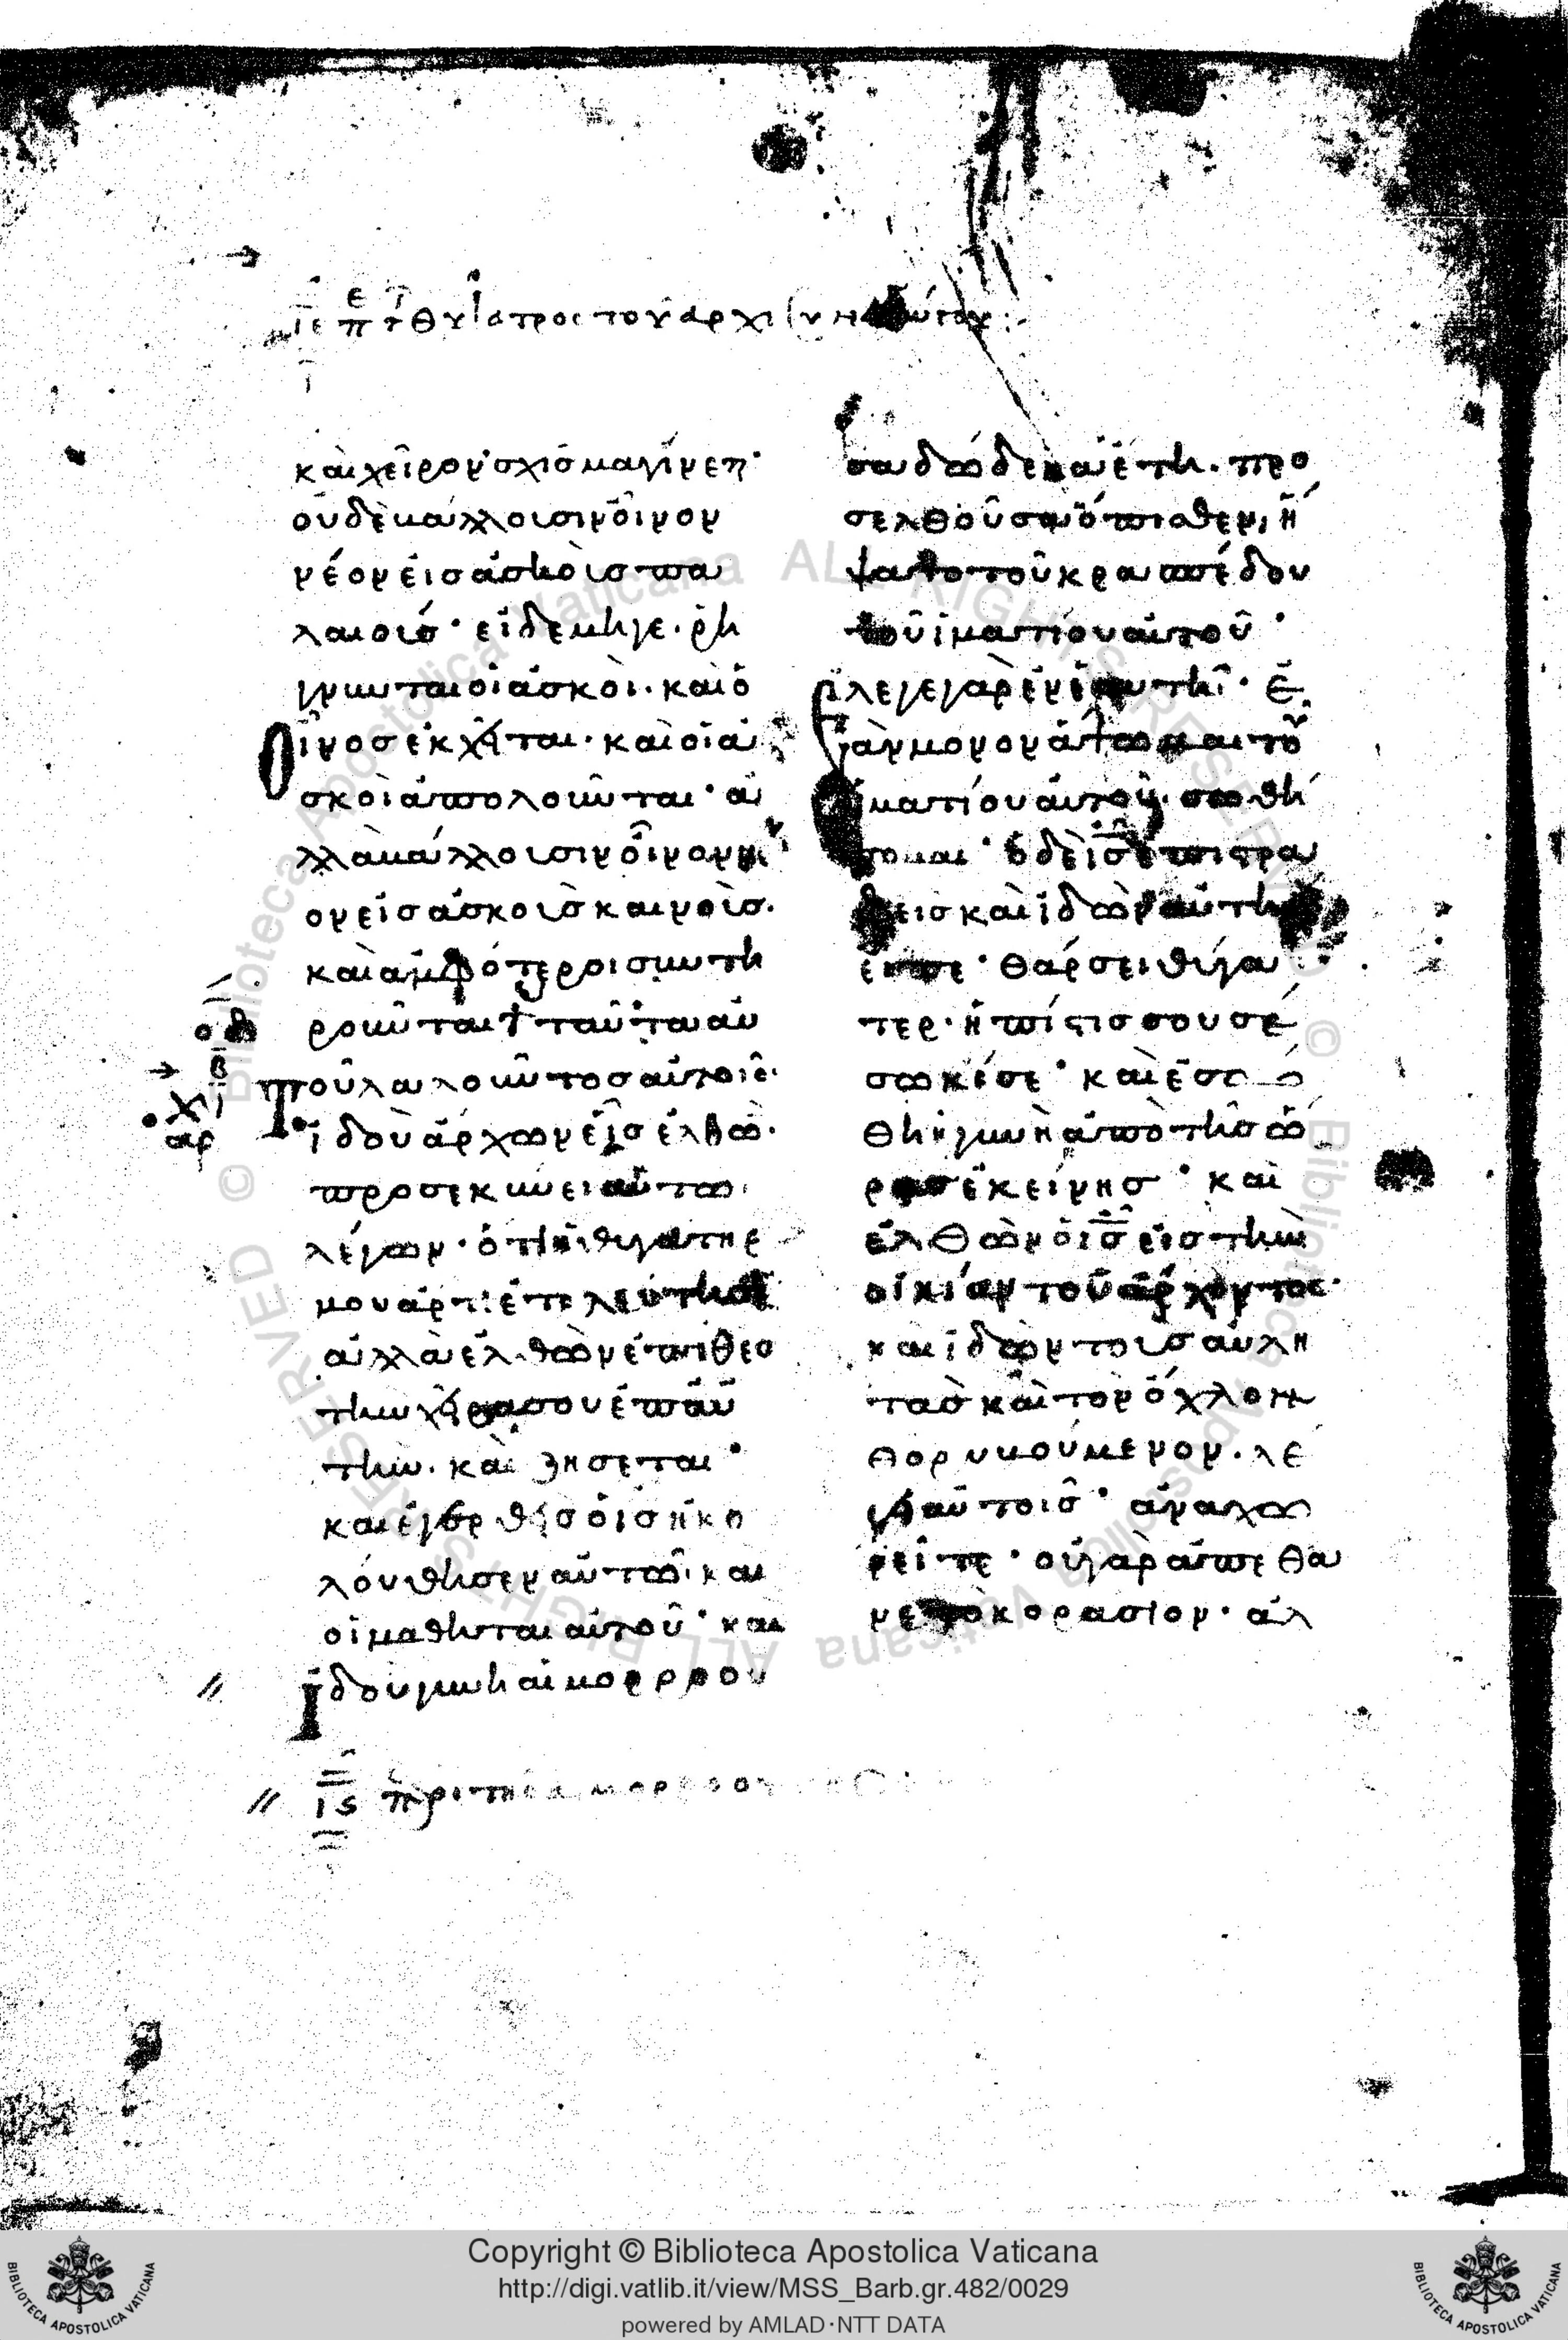 ιε π τ θυγατρος του αρχισυναγώγου
καὶ χεῖρον σχίσμα γίνετ·
οὐδὲ βάλλουσιν οἶνον
νέον εἰς ἀσκοὺς πα
λαιούς· εἰ δὲ μήγε· ῥή
γνυνται οἱ ἀσκοὶ· καὶ ὁ
οἶνος ἐκχεῖται· καὶ οἱ ἀ
σκοὶ ἀπολοῦνται· ἀ
λλὰ βάλλουσιν οἶνον νέ
ον εἰς ἀσκοὺς καινοὺς.
καὶ ἀμφότεροι συντη
ροῦνται ταῦτα αὐ
τοῦ λαλοῦντος αὐτοῖς·
ἰδοὺ ἄρχων εἷς ἐλθὼ·
προσεκύνει αὐτῶ·
λέγων· ὅτι ἡ θυγάτηρ
μου ἄρτι ἐτελεύτησε
ἀλλὰ ἐλθὼν ἐπίθες
τὴν χεῖρα σου ἐπ' αὐ
τὴν. καὶ ζήσεται·
καὶ ἐγερθεὶς ὁ ις ἠκο
λούθησεν αὐτῶ· και
οἱ μαθηται αὐτοῦ· και
ἰδου γυνὴ αἱμορροου
ις περι της αιμορροου
σα δώδεκα ἔτη. προ
σελθοῦσα ὄπισθεν, ἥ
ψατο τοῦ κρασπέδου
τοῦ ἱματίου αὐτοῦ·
ἔλεγε γὰρ ἐν ἑαυτῆ· ἐ
ὰν μονον ἅψωμαι τοῦ
ἱματίου αὐτοῦ. σωθή
σομαι· ὁ δὲ ις ἐπιστρα
φεις καὶ ἰδὼν αὐτὴν
εἶπε· θάρσει θύγα
τερ· ἡ πίστις σου σέ
σωκέ σε· καὶ ἐσώ
θη ἡ γυνὴ ἀπὸ τῆς ὥ
ρας ἐκείνης· καὶ
ἐλθὼν ὁ ις εἰς τὴν
οἰκίαν τοῦ ἄρχοντος·
καὶ ἰδὼν τοὺς αὐλη
τὰς καὶ τὸν ὄχλον
θορυβούμενον. λέ
γει αὐτοῖς· ἀναχω
ρεῖτε· οὐ γὰρ ἀπέθα
νε τὸ κοράσιον· ἀλ
Copyright © Biblioteca Apostolica Vaticana
http://digi.vatlib.it/view/MSS_Barb.gr.482/0029
powered by AMLAD·NTT DATA